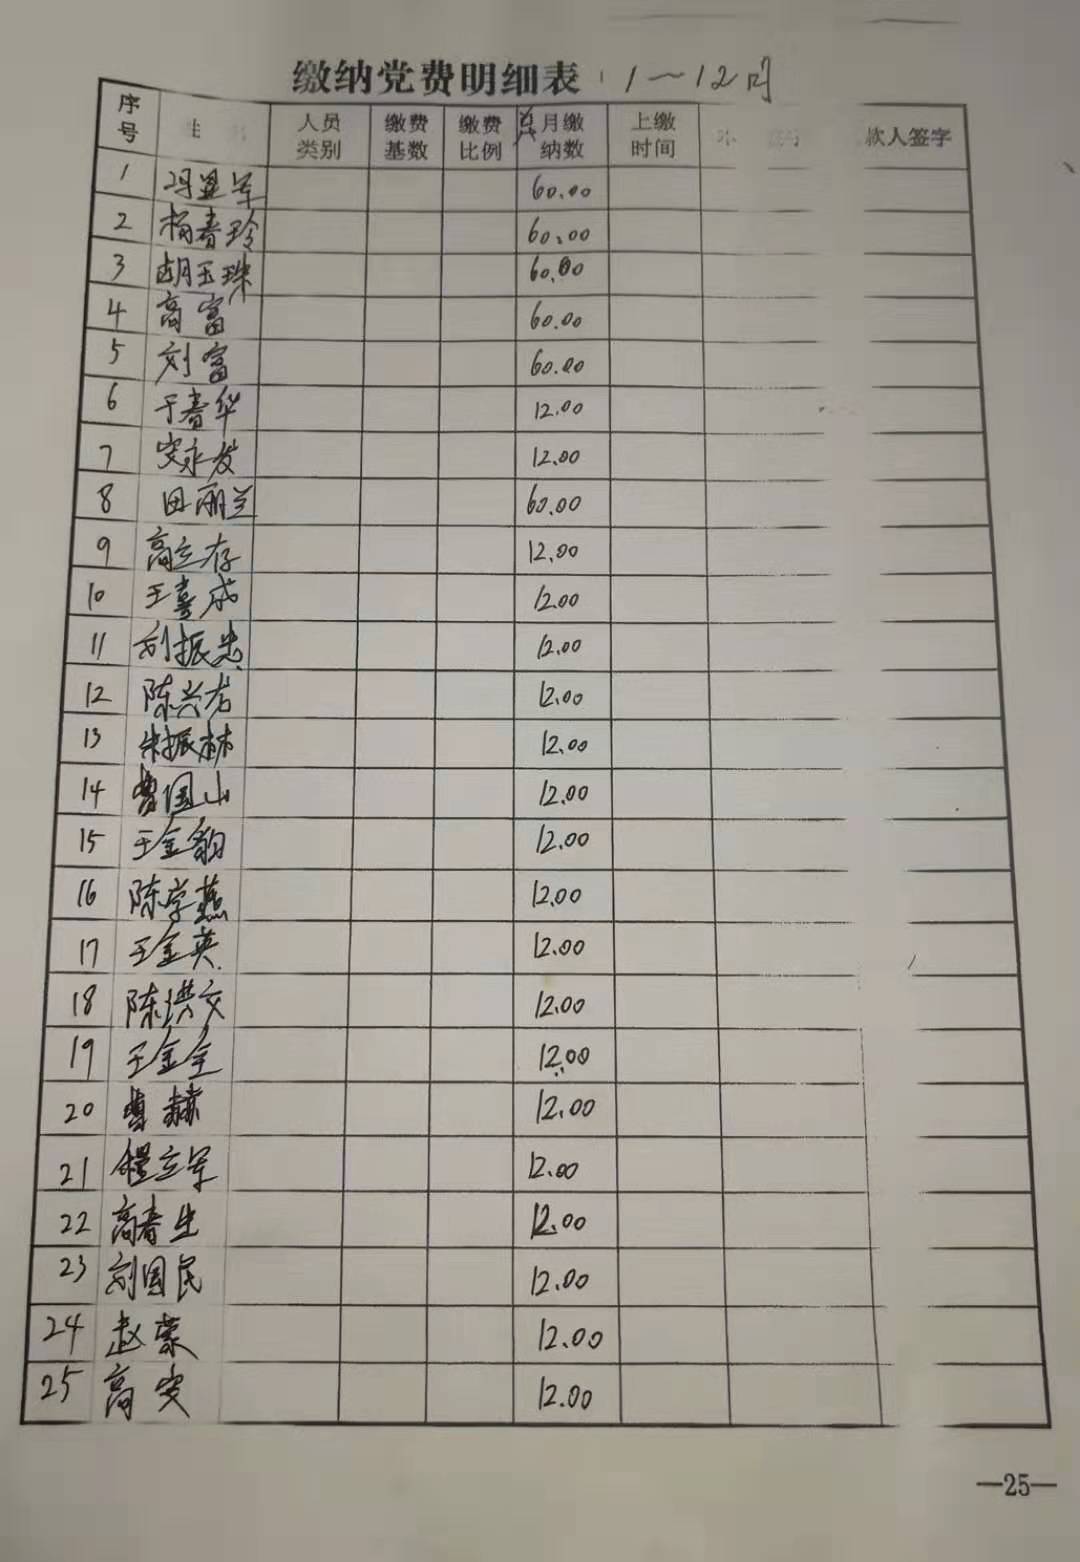 缴纳党费明细表 1～12月
序号 姓 名 人员类别 缴费基数 缴费比例 总月缴纳数 上缴时间 款人签字
1 冯显军 60.00
2 杨春玲 60.00
3 胡玉珠 60.00
4 高富 60.00
5 刘富 60.00
6 于春华 12.00
7 安永发 12.00
8 田丽兰 60.00
9 高立存 12.00
10 王喜成 12.00
11 刘振忠 12.00
12 陈兴者 12.00
13 朱振林 12.00
14 曹国山 12.00
15 王金韵 12.00
16 陈学燕 12.00
17 王金英 12.00
18 陈洪文 12.00
19 王金全 12.00
20 曹赫 12.00
21 立军 12.00
22 高春生 12.00
23 刘国民 12.00
24 赵荣 12.00
25 高安 12.00
—25—